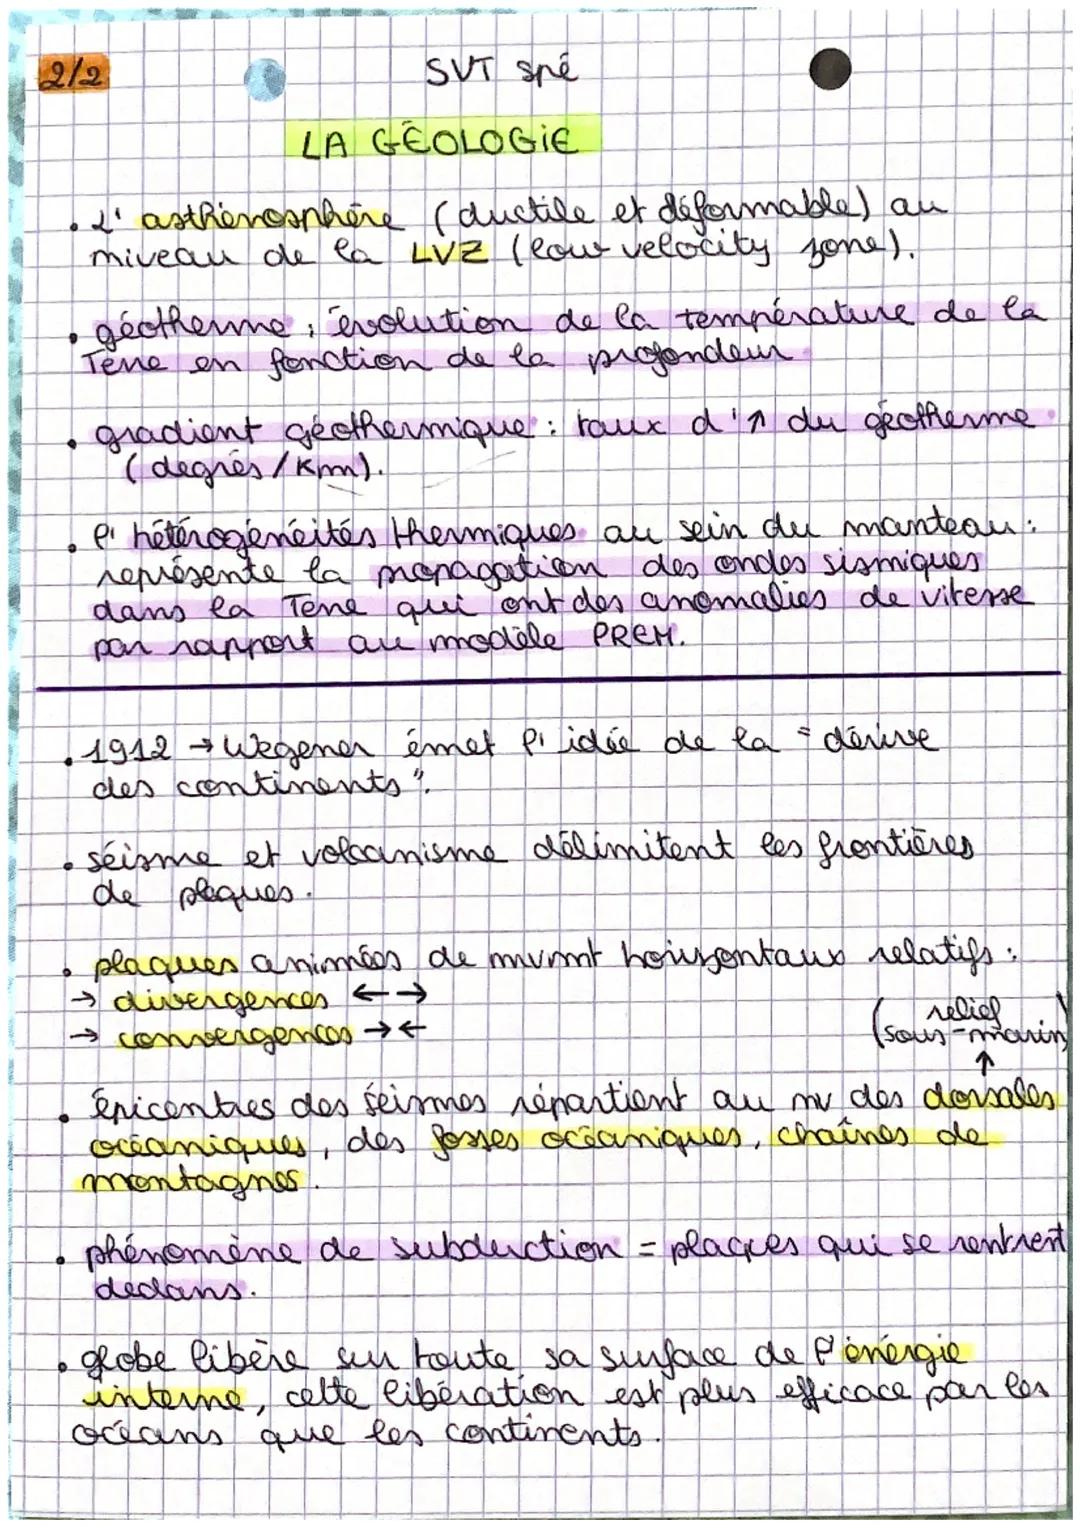 2/2
SVT spé
LA GÉOLOGIE
• L'asthénosphère (ductile et déformable) au
niveau de la LVZ (low velocity zone).
• géotherme : évolution de la température de la
Terre en fonction de la profondeur
• gradient géothermique : taux d'↑ du géotherme
(degrés/Km).
• l'hétérogénéités thermiques au sein du manteau :
représente la propagation des ondes sismiques
dans la Terre qui ont des anomalies de vitesse
par rapport au modèle PREM.
• 1912 → Wegener émet l'idée de la "dérive
des continents".
• séisme et volcanisme délimitent les frontières
de plaques.
• plaques animées de mvmt horizontaux relatifs :
→ divergences ←→
→ convergences →←
(relief
sous-marin)
↑
• Épicentres des séismes répartient au nv des dorsales
océaniques, des fosses océaniques, chaînes de
montagnes.
• phénomène de subduction = plaques qui se rentrent
dedans.
• globe libère sur toute sa surface de l'énergie
interne, cette libération est plus efficace par les
océans que les continents.